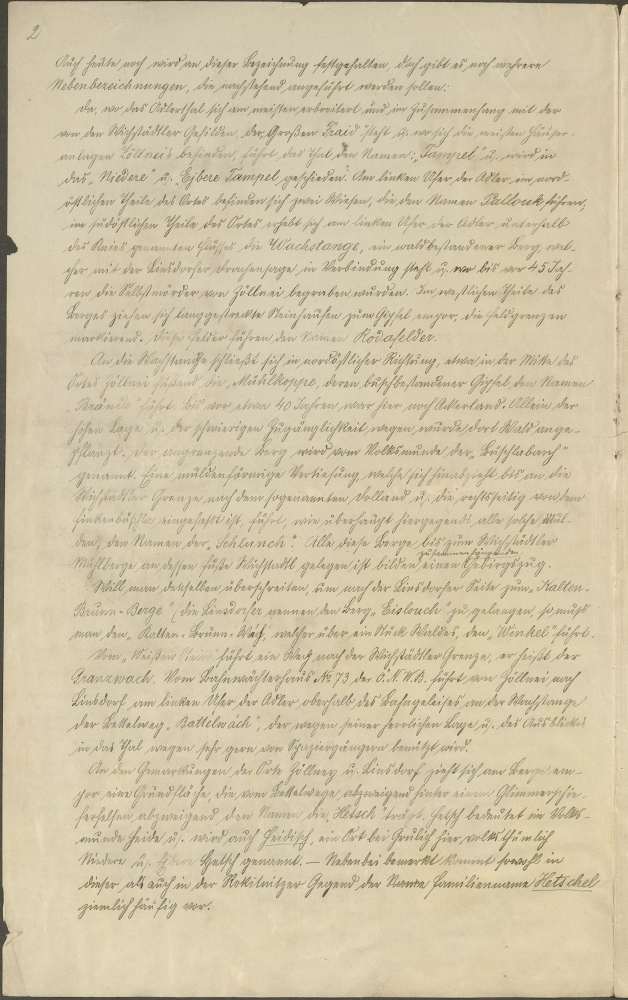 2
Auch heute noch wird an dieser Bezeichnung festgehalten, doch gibt es noch mehrere
Nebenbezeichnungen, die nachstehend angeführt werden sollen:
Da, wo das Adlerthal sich am meisten erbreitert und im Zusammenhang mit der
von den Wichstadtler Gefilden, der „Großen Traid" steht u. wo sich die meisten Häuser-
anlagen Zöllneis befinden, führt das Thal den Namen: „Tampel" u. wird in
das „Niedere" u. „Ejbere Tampel geschieden. Am linken Ufer der Adler, im nord-
östlichen Theile des Ortes befinden sich zwei Wiesen, die den Namen Pallbek führen,
im südöstlichen Theile des Ortes erhebt sich am linken Ufer der Adler unterhalb
des Knies genannten Flusses die Wachstange, ein waldbestandener Berg, wel-
cher mit der Linsdorfer Drachensage in Verbindung steht u. wo bis vor 45 Jah-
ren die Selbstmörder von Zöllnei begraben wurden. Im westlichen Theile des
Berges ziehen sich langgestreckte Steinhaufen zum Gipfel empor, die Feldgrenzen
markierend. Diese Felder führen den Namen Rodafelder.
An die Wachstange schließt sich in nordöstlicher Richtung, etwa in der Mitte des
Ortes Zöllnei stehend die „Mühlkoppe, deren buschbestandener Gipfel den Namen
führt. Bis vor etwa 40 Jahren war hier noch Ackerland. Allein der
hohen Lage u. der schwierigen Zugänglichkeit wegen, wurde dort Wald ange-
pflanzt. Der angrenzende Berg wird vom Volksmunde der „Büschlabarch"
genannt. Eine muldenförmige Vertiefung, welche sich hinabzieht bis an die
Wichstadtler Grenze, nach dem sogenannten Dolland u. die rechtsseitig von dem
Finkenbüschla eingefaßt ist, führt, wie überhaupt hierzegends alle solche Mul-
den, den Namen der „Schlunch". Alle diese Berge bis zum Wichstadtler
Mühlberge an dessen Fuße Wichstadtl gelegen ist bilden einen zusammenhängenden Gebirgszug.
Will man denselben überschreiten, um nach der Linsdorfer Seite zum „Kalten-
Brunn-Berge" (die Linsdorfer nennen den Berg „Eisbuch" zu gelangen, so muß
man den „Kalten-Brunn-Weg", welcher über ein Stück Waldes, den „Winkel" führt.
Vom „Weißen Stein" führt ein Weg nach der Wichstadtler Grenze, er heißt der
Granzwach. Vom Bahnwächterhaus No 73 der Ö.N.W.B. führt von Zöllnei nach
Linsdorf, am linken Ufer der Adler, oberhalb des Bahngeleises an der Wachstange
der Bettelweg „Battelwach", der wegen seiner herrlichen Lage u. des Ausblickes
in das Thal wegen sehr gern von Spaziergängern benützt wird.
An den Gemarkungen der Orte Zöllney u. Linsdorf zieht sich am Berge em-
por eine Grundfläche, die vom Bettelwege abzweigend hinter einem Glimmerschie-
ferfelsen abzweigend den Namen die „Hetsch" trägt. Hetsch bedeutet im Volks-
munde Heide u. wird auch Heidisch, ein Ort bei Grulich hier, volksthümlich
Niedere u. Ebere Hetsch genannt. — Nebenbei bemerkt kommt sowohl in
dieser, als auch in der Rokitnitzer Gegend der Name Familienname Hetschel
ziemlich häufig vor.